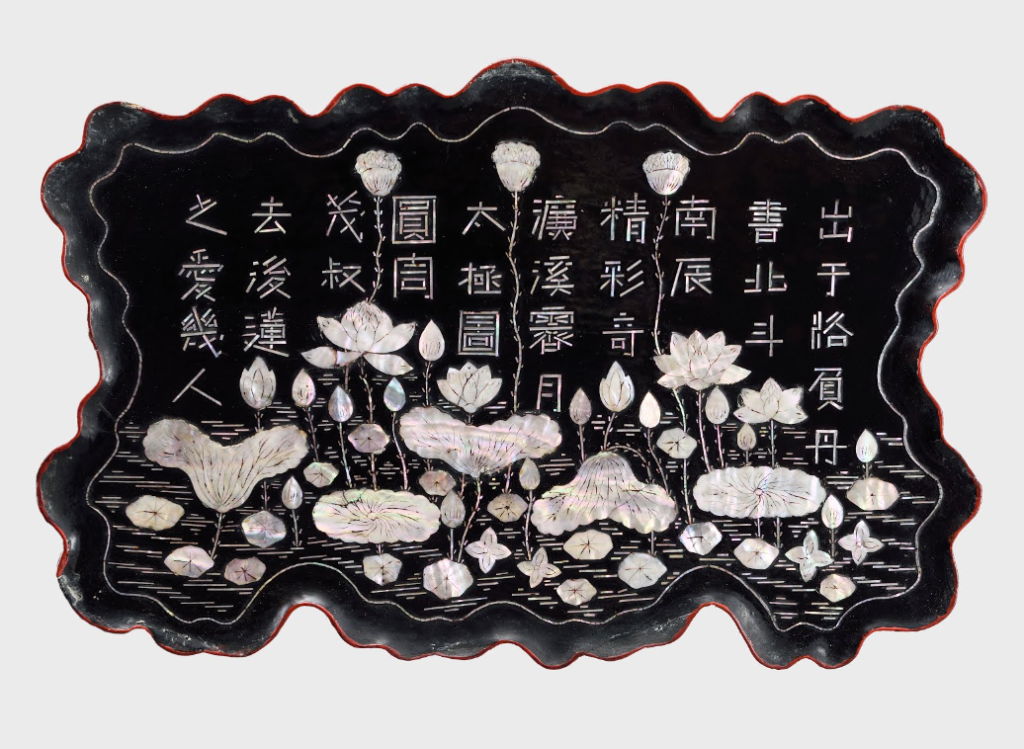 出于洛負丹
書北斗
南辰
精彩奇
濂溪霽月
太極圖
圓周
茂叔
去後蓮
之愛幾人